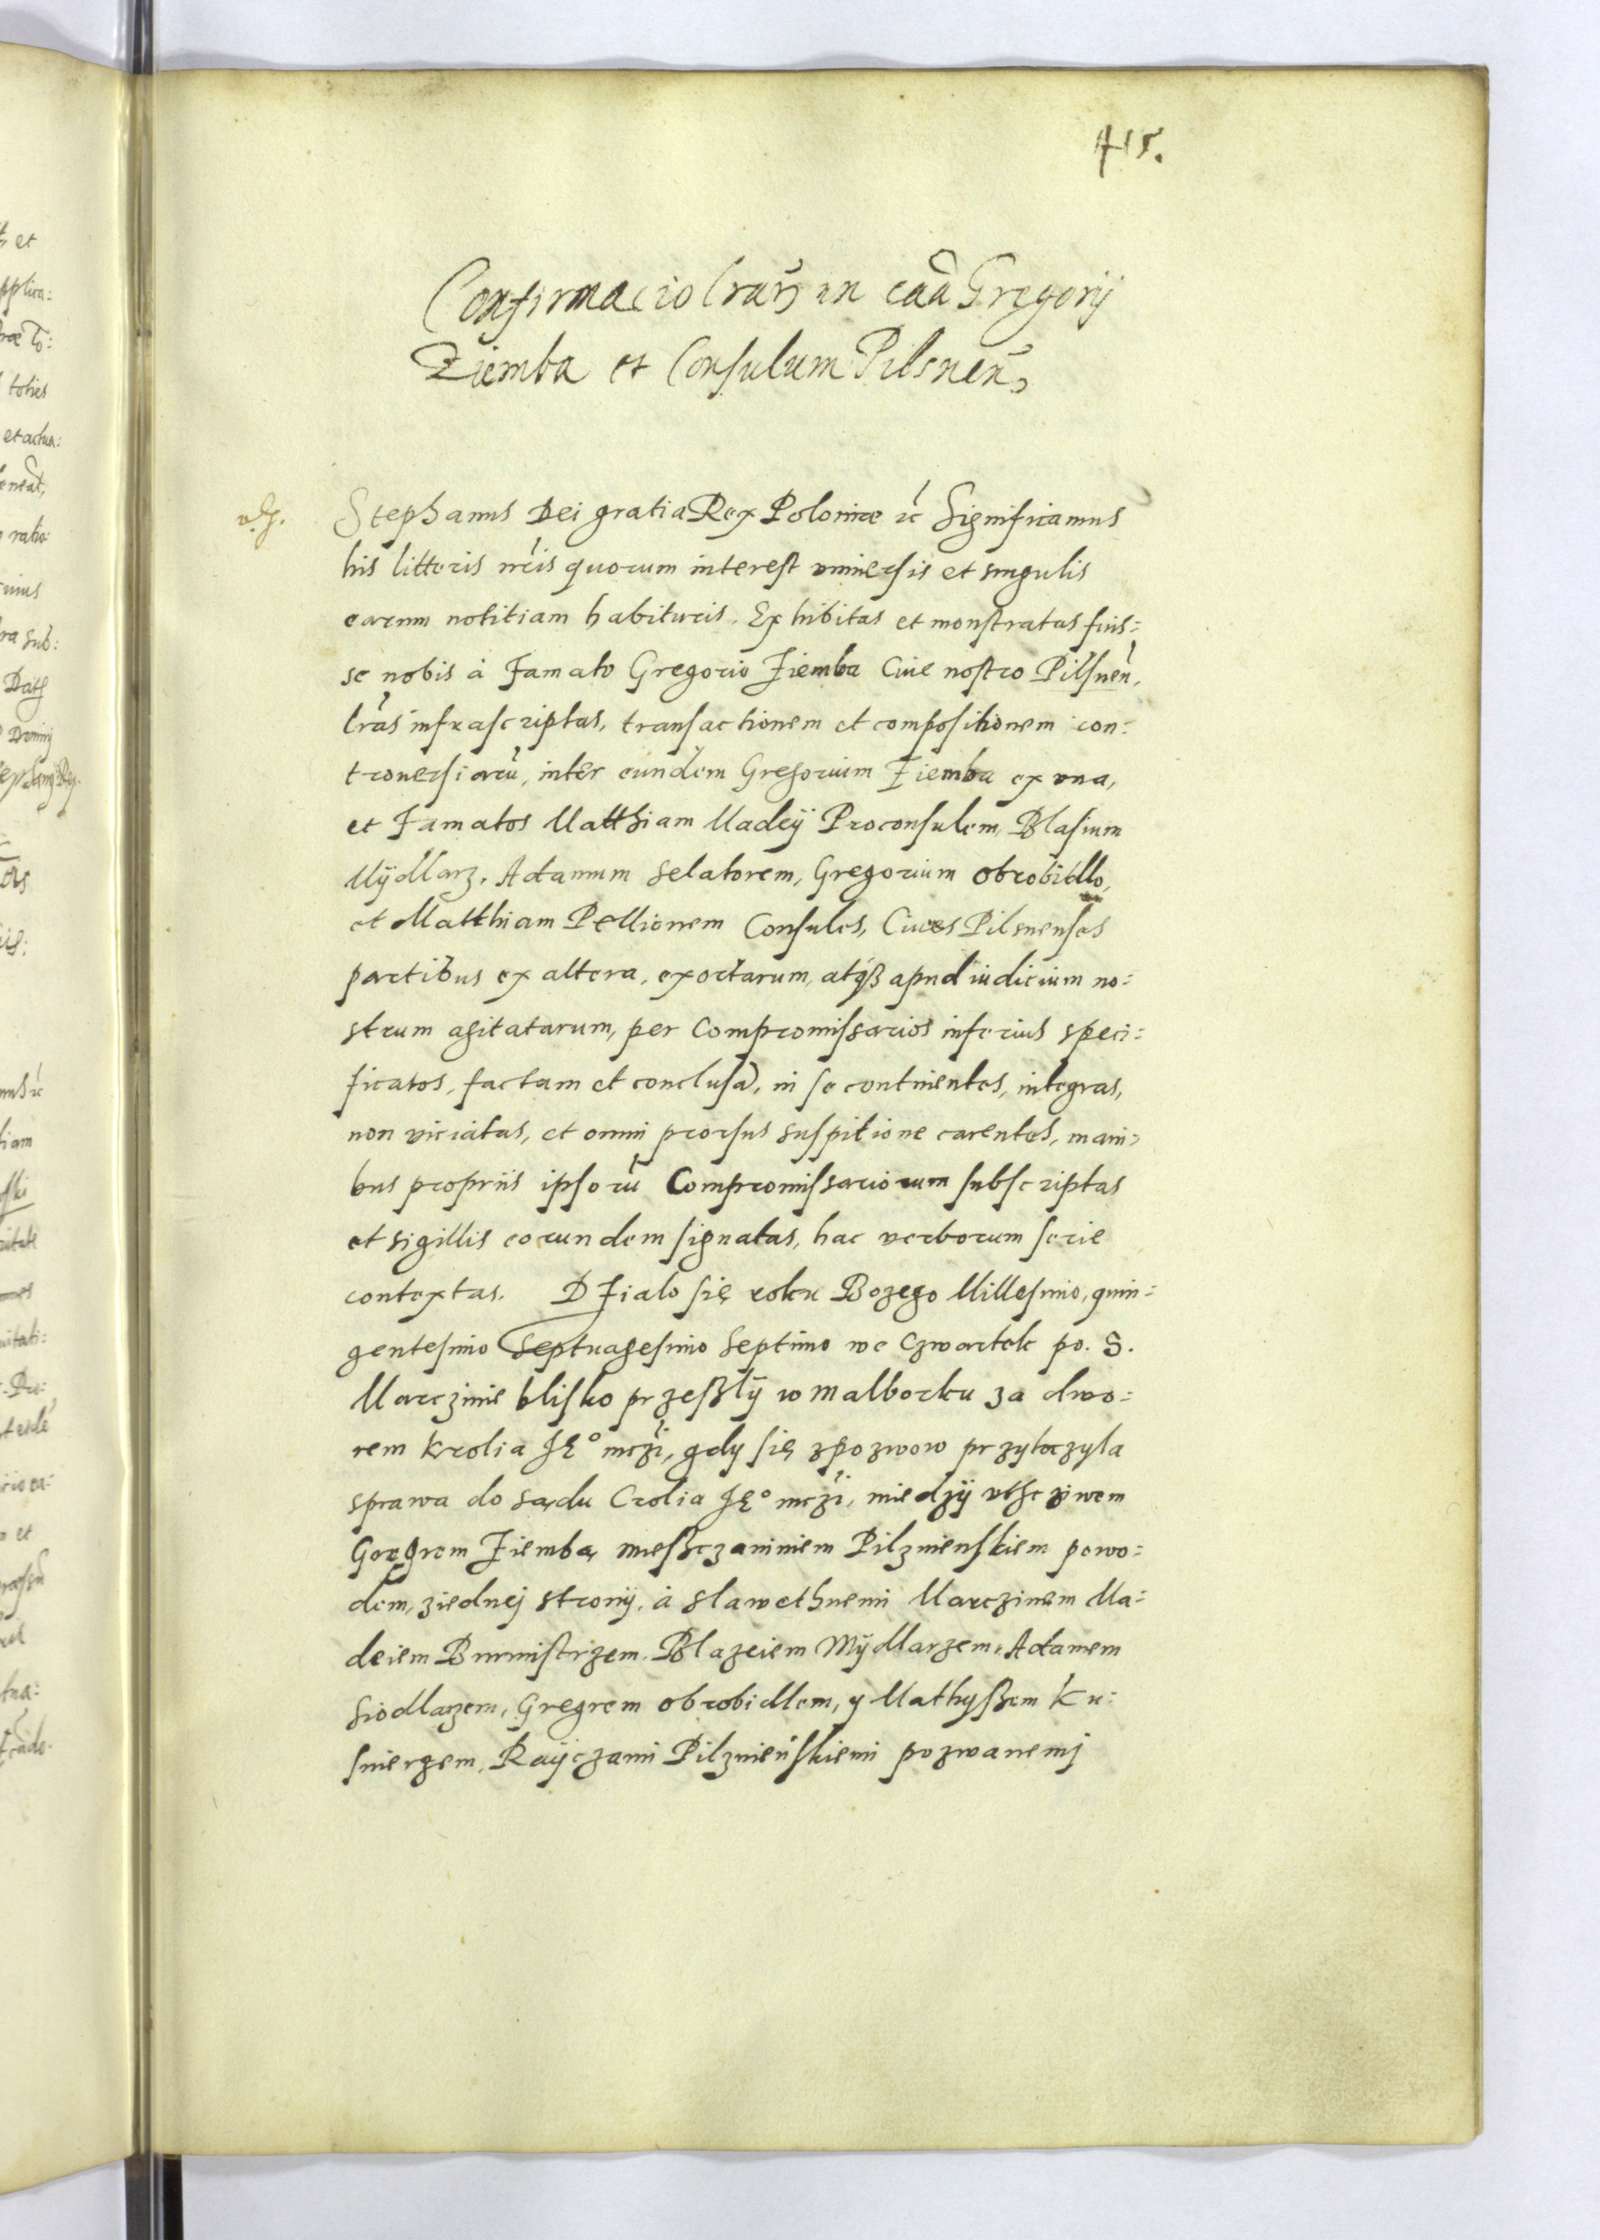 415.
Confirmacio lrarũ in caã Gregorij
Ziemba et Consulum Pilsnen̄,
Stephanus Dei gratia Rex Poloniae rc Significamus
his litteris nr̃is quorum interest vniuersis et singulis
earum notitiam habituris. Exhibitas et monstratas fuis=
se nobis à Famato Gregorio Ziemba Ciue nostro Pilsnen̄,
lr̃as infrascriptas, transactionem et compositionem con=
trouersiarũ, inter eundem Gregorium Ziemba ex vna,
et Famatos Matthiam Madeÿ Proconsulem, Blasium
Mÿdllarz, Adamum Selatorem, Gregorium obrobidllo,
et Matthiam Pellionem Consules, Ciues Pilsnenses
partibus ex altera, exortarum, atqß apud iudicium no=
strum agitatarum, per Compromissarios inferius speci=
ficatos, factam et conclusã, in se continentes, integras,
non viciatas, et omni prorsus suspitione carentes, mani=
bus propriis ipsorũ Compromissariorum subscriptas
et sigillis eorundem signatas, hac verborum serie
contextas. Dzialo się roku Bozego Millesimo, quin=
gentesimo Septuagesimo Septimo we Czwartek po. S.
Marczinie blisko przeszlÿ w malborku za dwo=
rem Krolia JEº mczi, gdy się zpozwow przytoczyla
sprawa do sądu Crolia JEº mczi, miedzÿ vthcziwem
Gregrem Ziembą mieszczaninem Pilznienskiem powo=
dem, ziednej stronÿ, à slawethnemi Marczinem Ma=
deiem Burmistrzem, Blazeiem Mÿdllarzem, Adamem
Siodlarzem, Gregrem obrobidllem, y Mathyszem Ku=
snierzem, Raÿczami Pilznieńskiemi pozwanemj